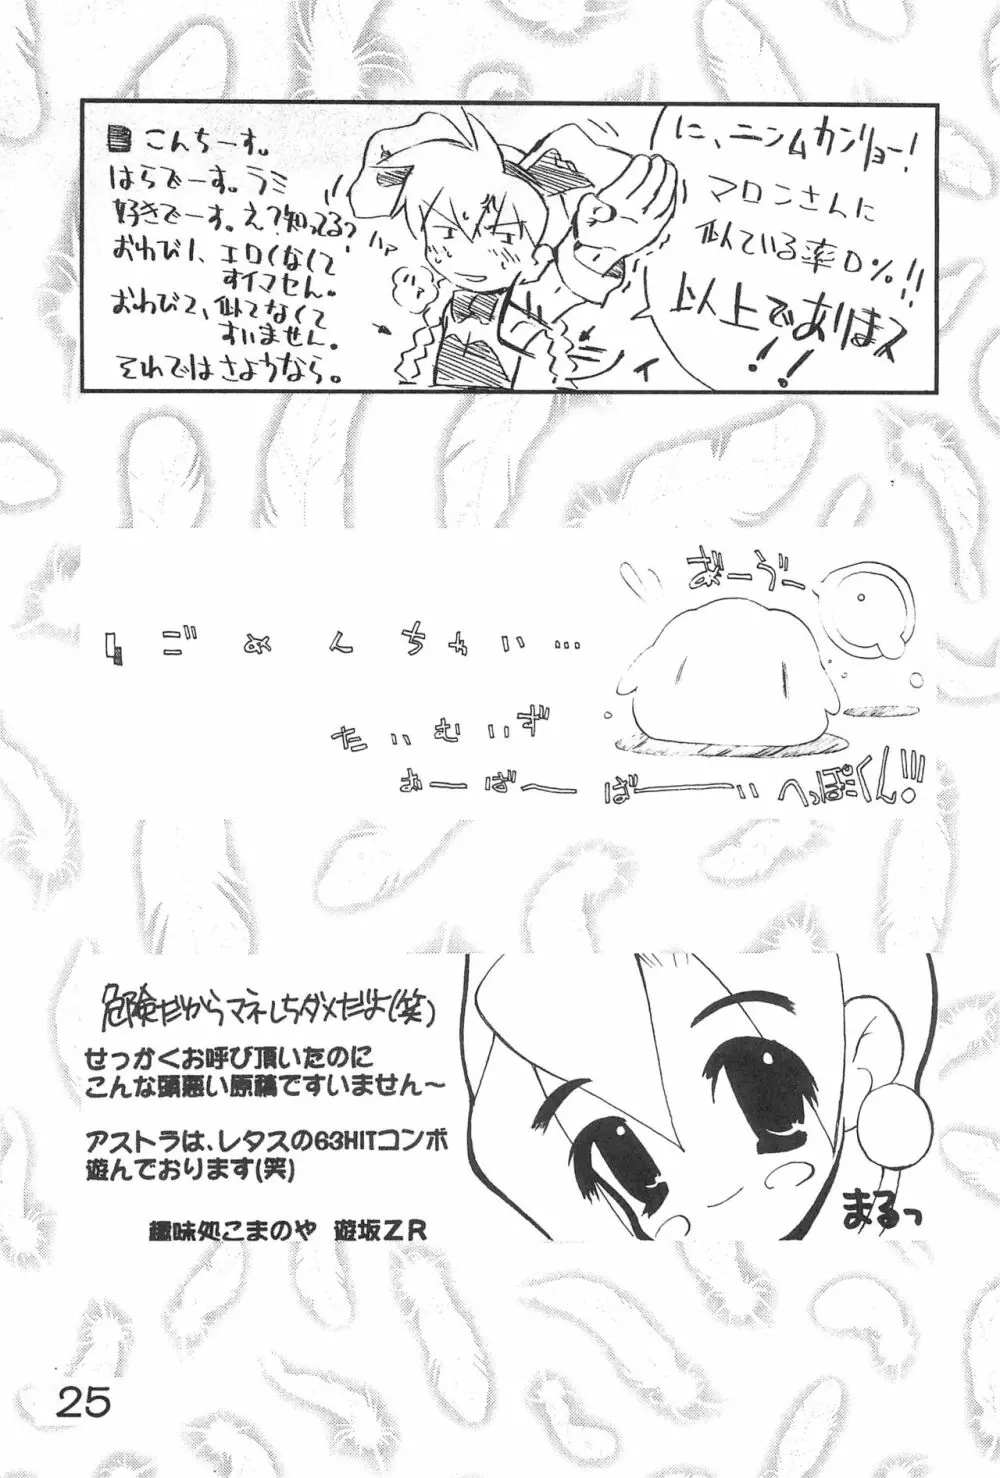 こんちーす。
はらでーす。ラミ
好きでーす。え?知ってる?
おわび1、エロくなくて
すイマセん。
おわび2、似てなくて
すいません。
それではさようなら。
に、ニンムカンリョー!
マロンさんに
似ている率0%!!
以上でありまス
!!
ごめんちゃい…
たいむいず
おーばーばーい
へっぽくん!!!
危険だからマネしちダメだよ(笑)
せっかくお呼び頂いたのに
こんな頭悪い原稿ですいません～
アストラは、レタスの63HITコンボ
遊んでおります(笑)
趣味処こまのや 遊坂ZR
まるっ
25